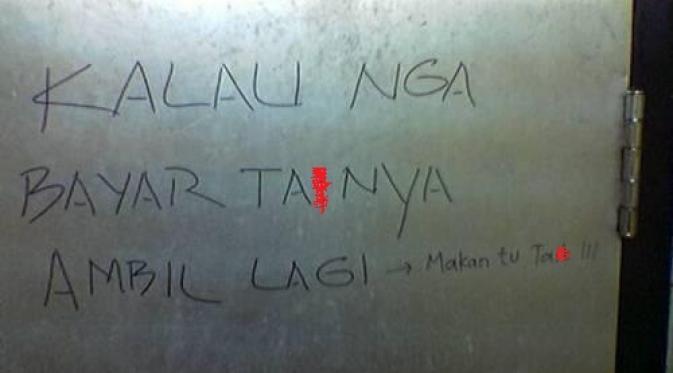 KALAU NGA
BAYAR TA NYA
AMBIL LAGI → Makan tu Ta !!!